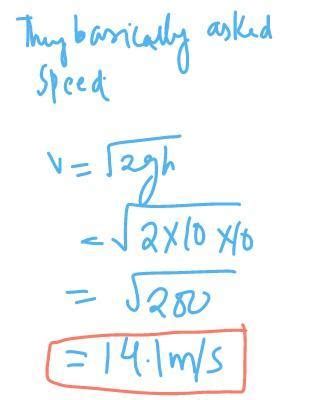 They basically asked
Speed
v = √2gh
= √2×10×10
= √200
= 14.1m/s